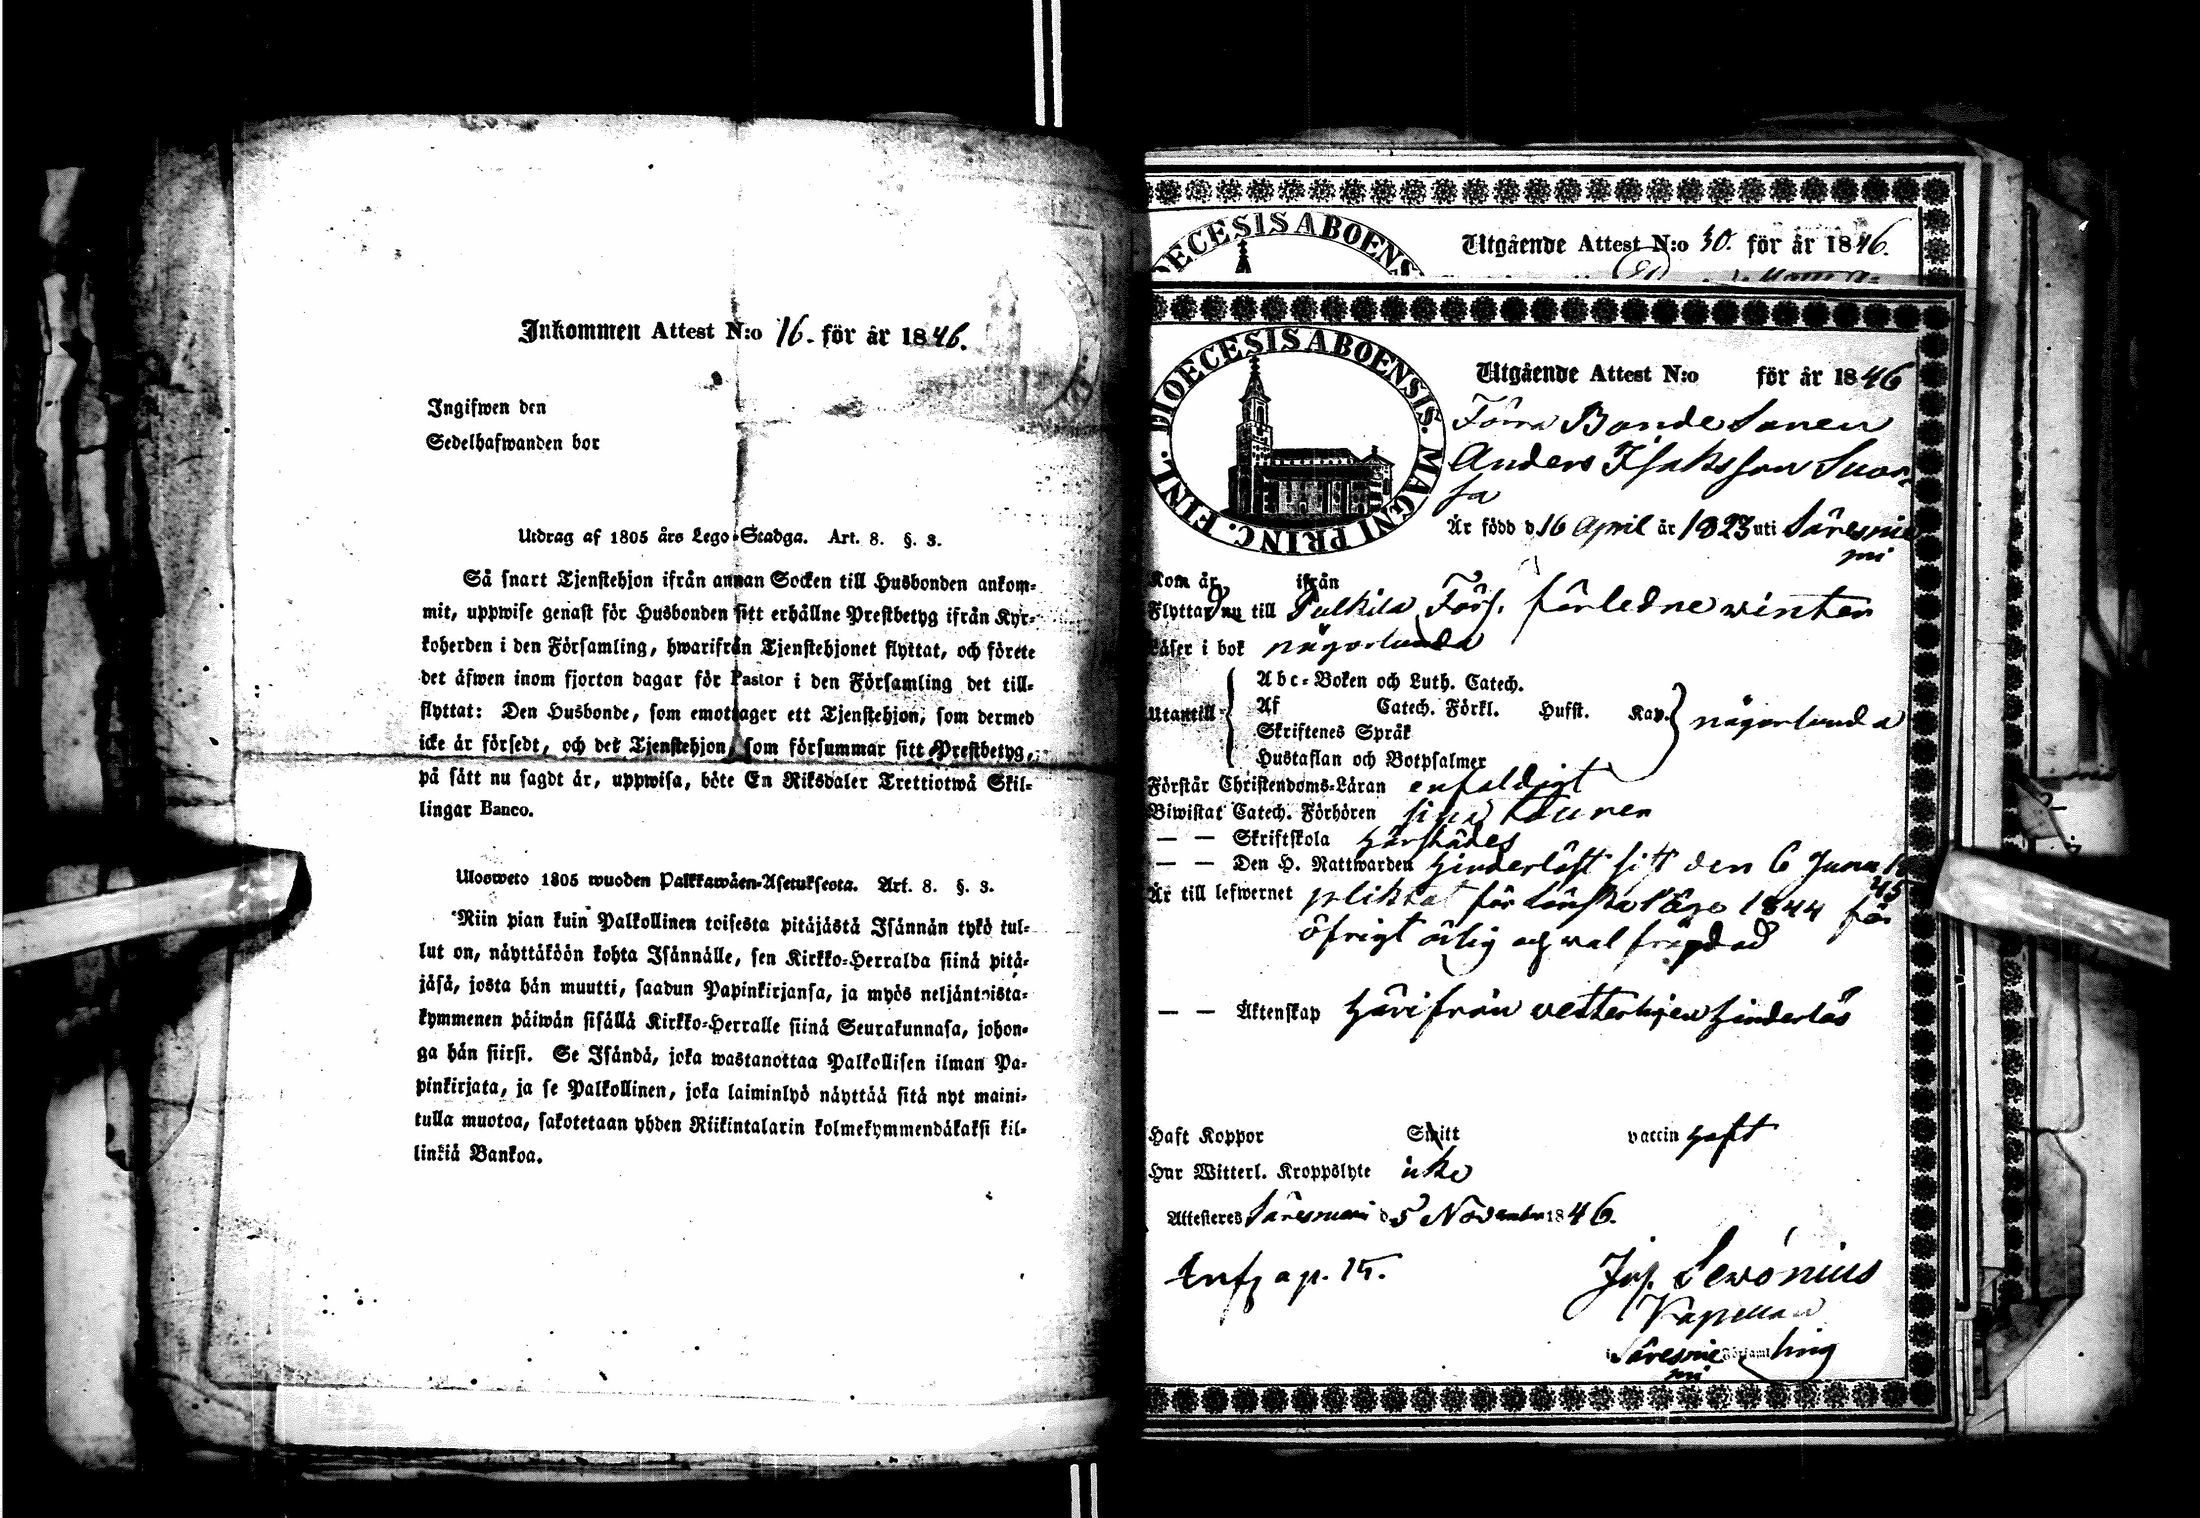 Inkommen Attest N:o 16. för år 1846.
Ingifwen den
Sedelhafwanden bor
Utdrag af 1805 års Lego-Stadga. Art. 8. §. 3.
Så snart Tjenstehjon ifrån annan Socken till Husbonden ankom-
mit, uppwise genast för Husbonden sitt erhållne Prestbetyg ifrån Kyr-
koherden i den Församling, hwarifrån Tjenstehjonet flyttat, och förete
det äfwen inom fjorton dagar för Pastor i den Församling det till-
flyttat: Den Husbonde, som emottager ett Tjenstehjon, som dermed
icke är försedt, och det Tjenstehjon, som försummar sitt Prestbetyg,
på sätt nu sagdt är, uppwisa, böte En Riksdaler Trettiotwå Skil-
lingar Banco.
Ulosweto 1805 wuoden Palkkawäen-Asetuksesta. Art. 8. §. 3.
Niin pian kuin Palkollinen toisesta pitäjästä Isännän tykö tul-
lut on, näyttäköön kohta Isännälle, sen Kirkko-Herralda siinä pitä-
jäsä, josta hän muutti, saadun Papinkirjansa, ja myös neljäntoista-
kymmenen päiwän sisällä Kirkko-Herralle siinä Seurakunnasa, johon-
ga hän siirsi. Se Isändä, joka wastanottaa Palkollisen ilman Pa-
pinkirjata, ja se Palkollinen, joka laiminlyö näyttää sitä nyt maini-
tulla muotoa, sakotetaan yhden Riikintalarin kolmekymmendäkaksi kil-
linkiä Bankoa.
DIOECESIS ABOENS
Utgående Attest N:o 30. för år 1846.
DIOECESIS ABOENSIS. MAGNI PRINC. FINL.
Utgående Attest N:o för år 1846
Förra Bonde Sonen
Anders Isaksson Suor-
sa
Är född d. 16 April år 1823 uti Säresnie
mi
Kom år ifrån
Flyttade nu till Pulkila Förs. förledne winter
Läser i bok någorlunda
Utantill Abc-Boken och Luth. Catech.
Af Catech. Förkl. Hufst. Kap. någorlunda
Skriftenes Språk
Hustaflan och Botpsalmer
Förstår Christendoms-Läran enfaldigt
Biwistat Catech. Förhören sina Touren
— — Skriftskola härstädes
— — Den H. Nattwarden hinderlöst sist den 6 Junii 18
45
Är till lefwernet pliktat för Lönska Läge 1844 för
öfrigt ärlig och wal frägdad
— — Äktenskap härifrån vetterligen hinderlös
Haft Koppor Smitt vaccin haft
Har Witterl. Kroppslyte icke
Attesteras Säresniemi d. 5 November 1846.
p. 15.
Jos. Kapellan
i Säresnie Församling
mi